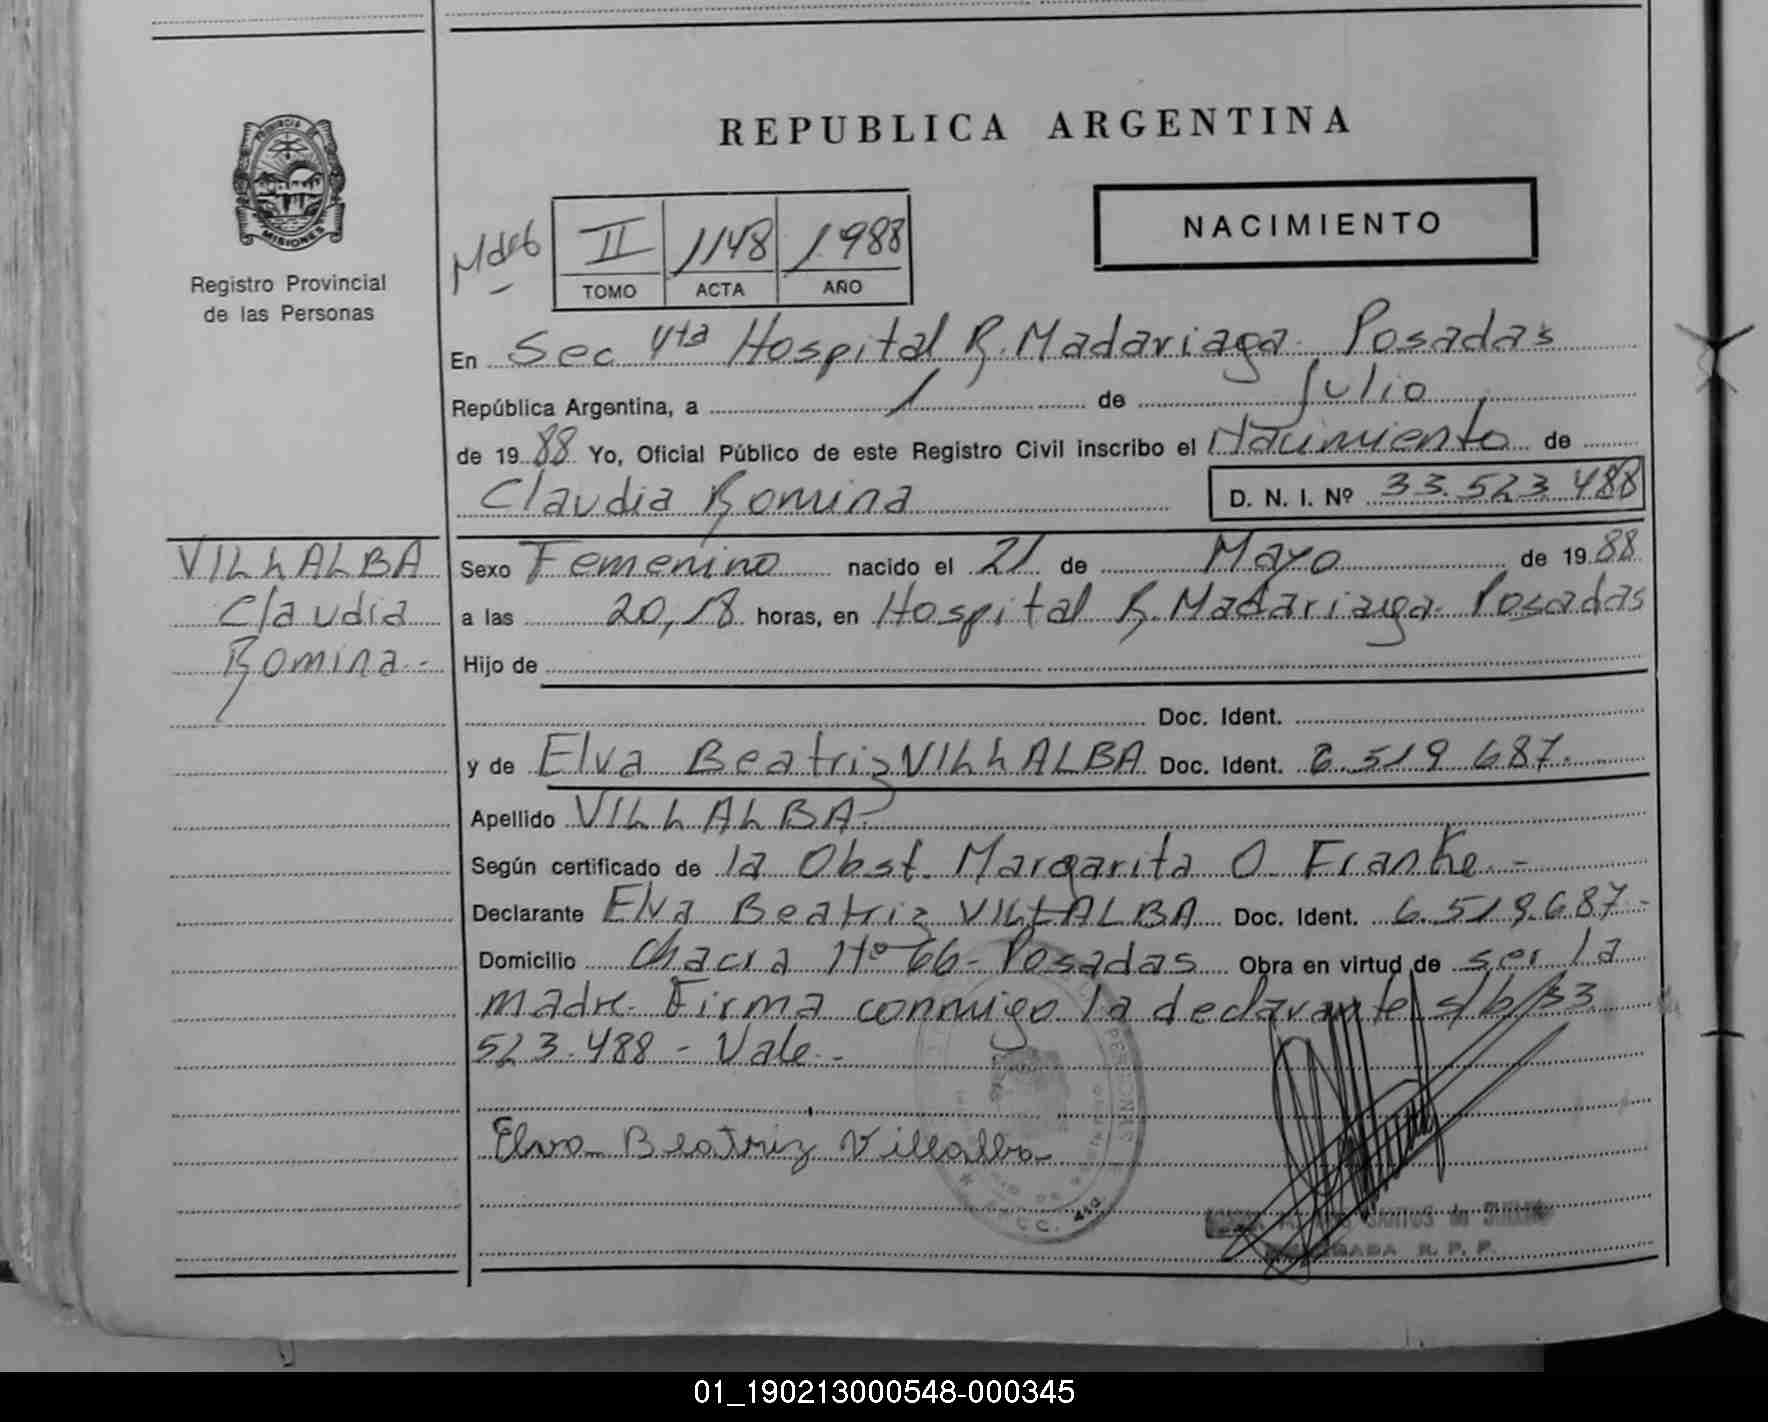 REPUBLICA ARGENTINA
PROVINCIA DE
MISIONES
Registro Provincial
de las Personas
II 1148 1988
TOMO ACTA AÑO
NACIMIENTO
En Sec 4ta Hospital R. Madariaga Posadas
República Argentina, a 1 de Julio
de 1988 Yo, Oficial Público de este Registro Civil inscribo el Nacimiento de
Claudia Romina D. N. I. Nº 33.523.488
VILLALBA
Claudia
Romina.-
Sexo Femenino nacido el 21 de Mayo de 1988
a las 20,18 horas, en Hospital R. Madariaga Posadas
Hijo de
Doc. Ident.
y de Elva Beatriz VILLALBA Doc. Ident. 6.519 687.
Apellido VILLALBA.-
Según certificado de la Obst. Margarita O. Franke.-
Declarante Elva Beatriz VILLALBA Doc. Ident. 6.519.687.-
Domicilio Chacra Nº 66- Posadas Obra en virtud de ser la
madre. Firma conmigo la declarante s/b/33
523.488 - Vale.-
Elva Beatriz Villalba
SANTOS de
R. P. P.
01_190213000548-000345